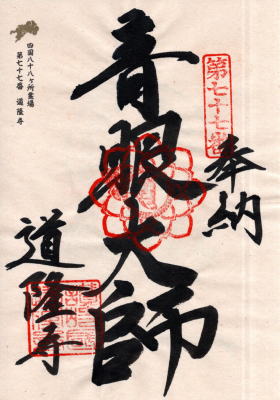 奉納
第七十七番
音眼大師
道隆寺
四国八十八ヶ所霊場
第七十七番 道隆寺